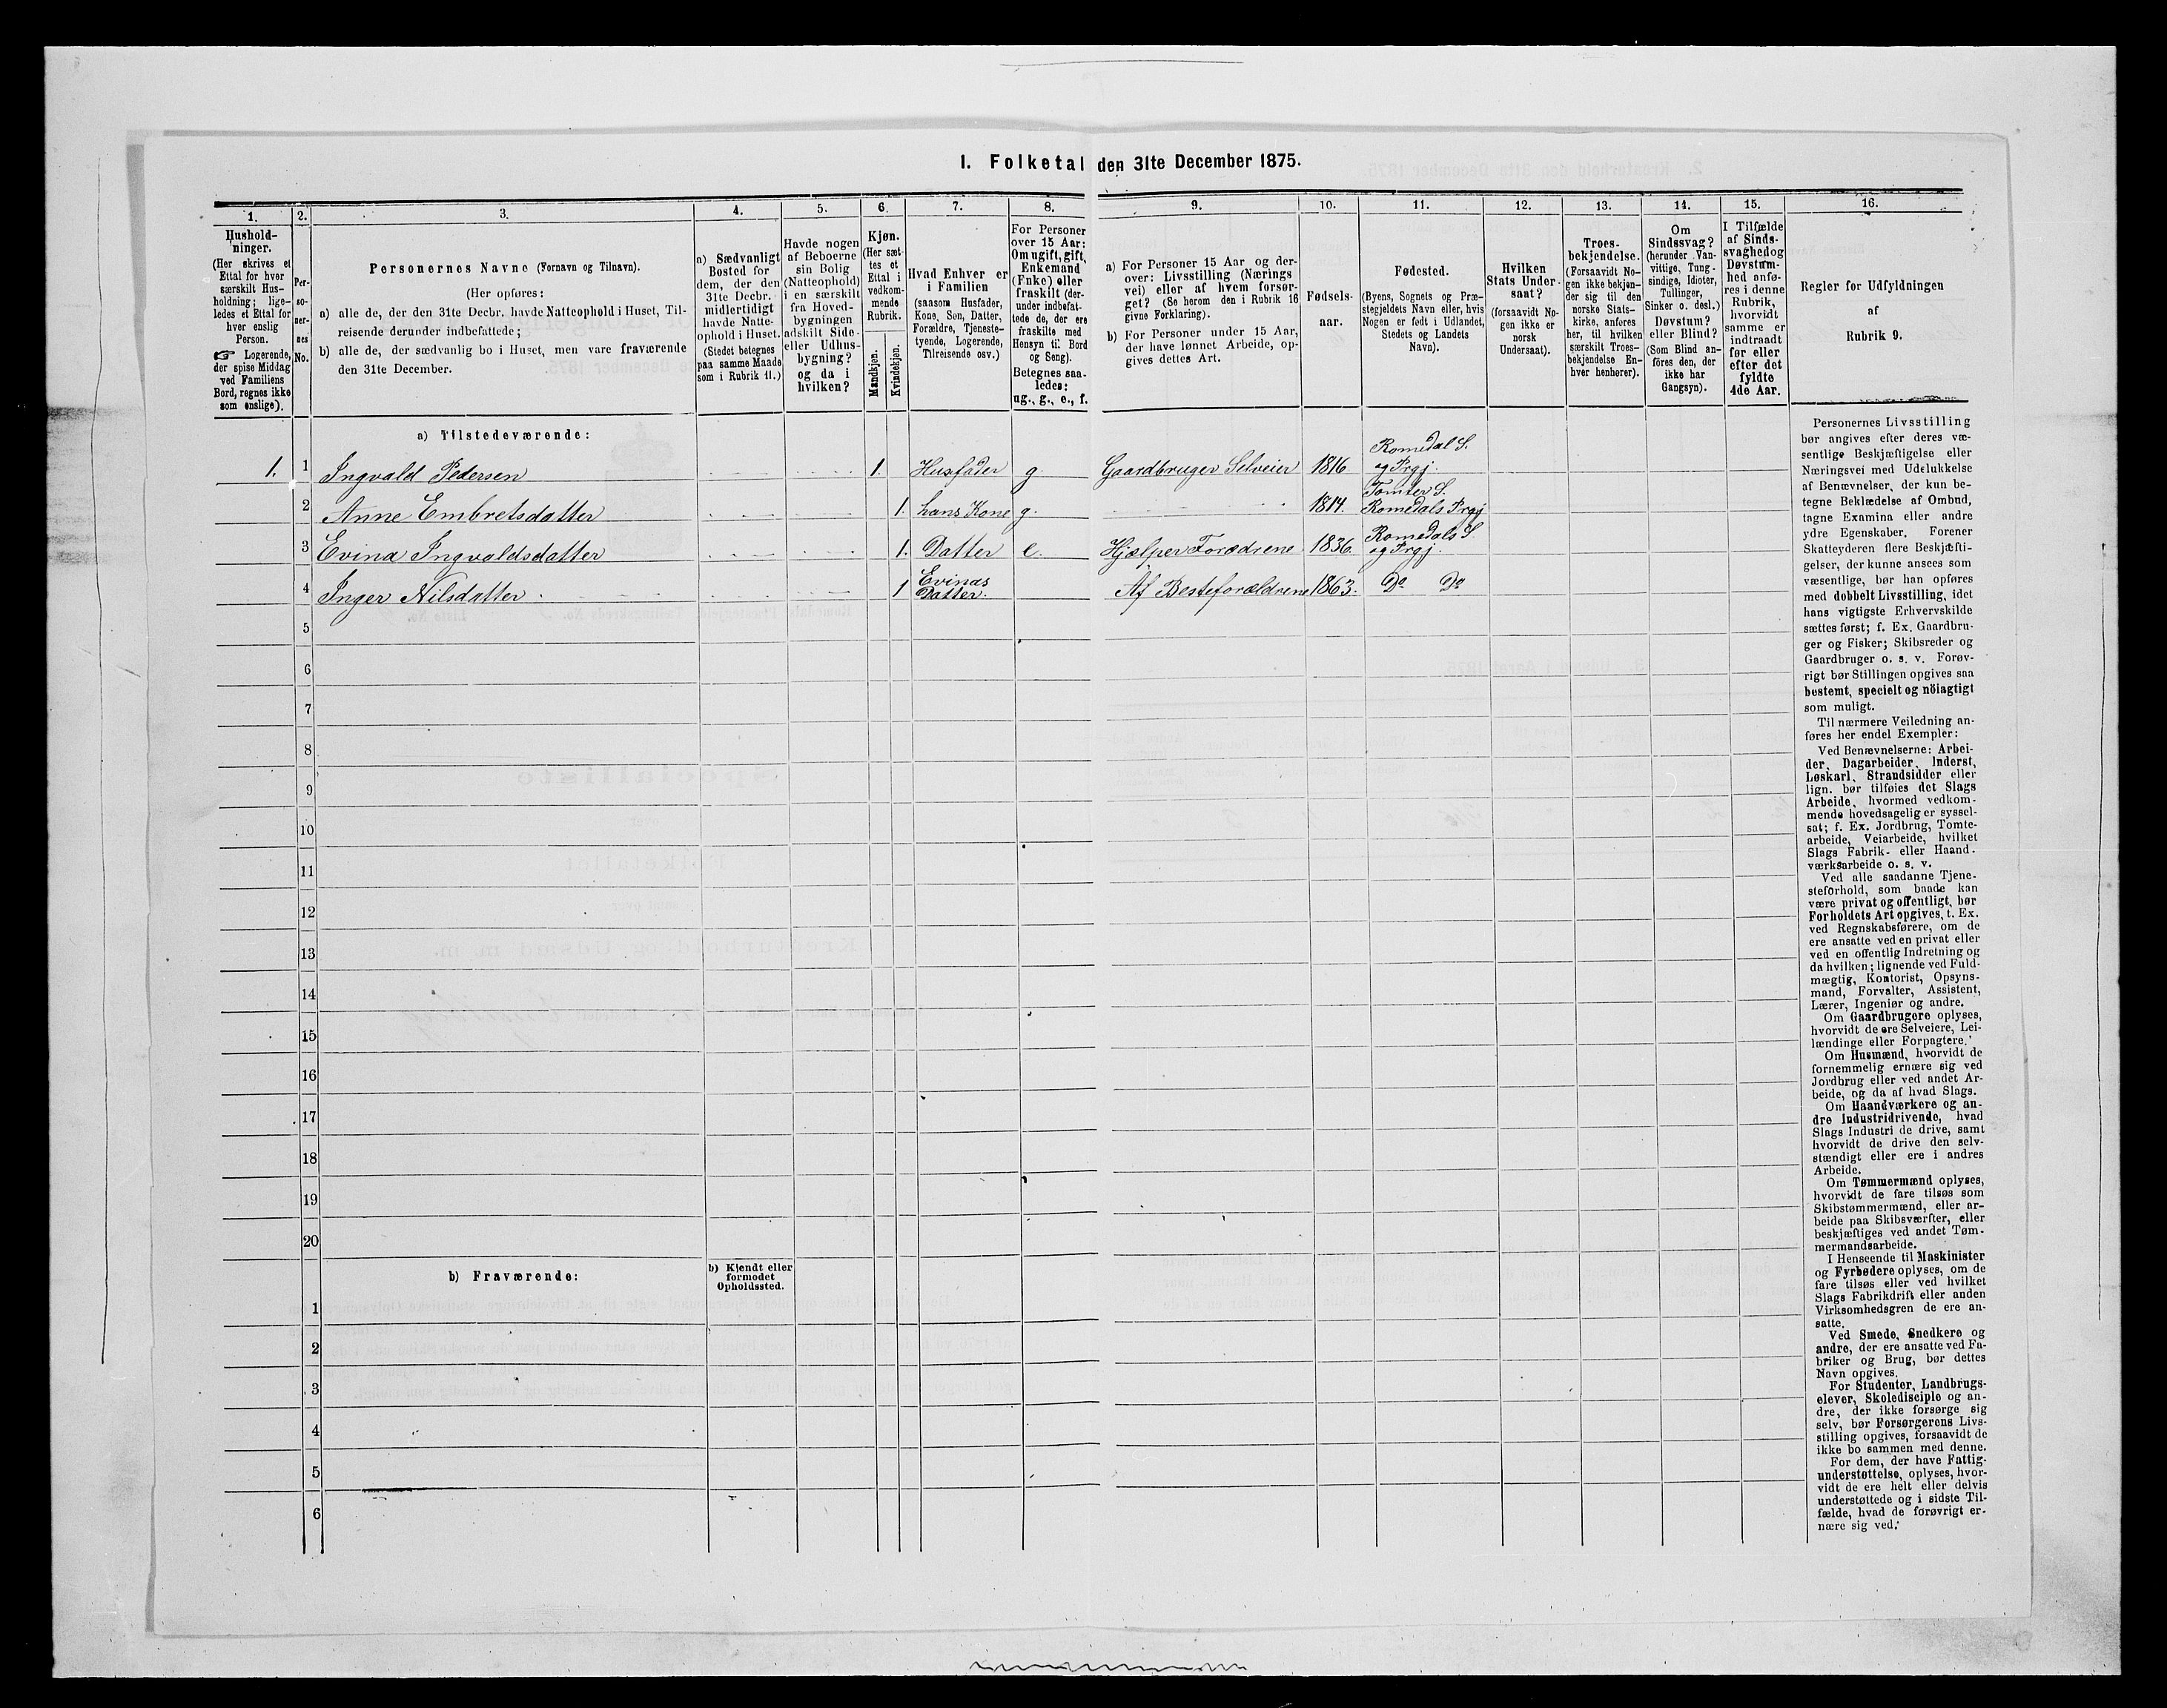 1. Folketal den 31te December 1875.
1. 2. 3. 4. 5. 6. 7. 8. 9. 10. 11. 12. 13. 14. 15. 16.
Hushold-
ninger.
(Her skrives et
Ettal for hver
særskilt Hus-
holdning; lige-
ledes et Ettal for
hver enslig
Person.
☞ Logerende,
der spise Middag
ved Familiens
Bord, regnes ikke
som enslige).
Per-
so-
ner-
nes
No.
Personernes Navne (Fornavn og Tilnavn).
(Her opføres:
a) alle de, der den 31te Decbr. havde Natteophold i Huset, Til-
reisende derunder indbefattede;
b) alle de, der sædvanlig bo i Huset, men vare fraværende
den 31te December.
a) Sædvanligt
Bosted for
dem, der den
31te Decbr.
midlertidigt
havde Natte-
ophold i Huset.
(Stedet betegnes
paa samme Maade
som i Rubrik 11.)
Havde nogen
af Beboerne
sin Bolig
(Natteophold)
i en særskilt
fra Hoved-
bygningen
adskilt Side-
eller Udhus-
bygning?
og da i
hvilken?
Kjøn.
(Her sæt-
tes et
Ettal i
vedkom-
mende
Rubrik.
Mandkjøn.
Kvindekjøn.
Hvad Enhver er
i Familien
(saasom Husfader,
Kone, Søn, Datter,
Forældre, Tjeneste-
tyende, Logerende,
Tilreisende osv.)
For Personer
over 15 Aar:
Om ugift, gift,
Enkemand
(Enke) eller
fraskilt (der-
under indbefat-
tede de, der ere
fraskilte med
Hensyn til Bord
og Seng).
Betegnes saa-
ledes:
ug., g., e., f.
a) For Personer 15 Aar og der-
over: Livsstilling (Nærings
vei) eller af hvem forsør-
get? (Se herom den i Rubrik 16
givne Forklaring).
b) For Personer under 15 Aar,
der have lønnet Arbeide, op-
gives dettes Art.
Fødsels-
aar.
Fødested.
(Byens, Sognets og Præ-
stegjeldets Navn eller, hvis
Nogen er født i Udlandet,
Stedets og Landets
Navn).
Hvilken
Stats Under-
saat?
(forsaavidt No-
gen ikke er
norsk
Undersaat).
Troes-
bekjendelse.
(Forsaavidt No-
gen ikke bekjen-
der sig til den
norske Stats-
kirke, anføres
her, til hvilken
særskilt Troes-
bekjendelse En-
hver henhører).
Om
Sindssvag?
(herunder Van-
vittige, Tung-
sindige, Idioter,
Tullinger,
Sinker o. desl.)
Døvstum?
eller Blind?
(Som Blind an-
føres den, der
ikke har
Gangsyn).
I Tilfælde
af Sinds-
svaghed og
Døvstum-
hed anfø-
res i denne
Rubrik,
hvorvidt
samme er
indtraadt
før eller
efter det
fyldte
4de Aar.
Regler for Udfyldningen
af
Rubrik 9.
a) Tilstedeværende:
1. 1 Ingvald Pedersen 1. Husfader g. Gaardbruger Selveier 1816 Romedal S. og Prgj.
2 Anne Embretsdatter 1. hans Kone g. 1814. Tomter S. Romedals Prgj
3 Evina Ingvaldsdatter 1. Datter e. Hjælper Forædrene 1836. Romedals S. og Prgj.
4 Inger Nilsdatter 1 Evinas Datter. Af Besteforældrene 1863. Do Do
5
6
7
8
9
10
11
12
13
14
15
16
17
18
19
20
b) Fraværende:
b) Kjendt eller
formodet
Opholdssted.
1
2
3
4
5
6
Personernes Livsstilling
bør angives efter deres væ-
sentlige Beskjæftigelse eller
Næringsvei med Udelukkelse
af Benævnelser, der kun be-
tegne Beklædelse af Ombud,
tagne Examina eller andre
ydre Egenskaber. Forener
Skatteyderen flere Beskjæfti-
gelser, der kunne ansees som
væsentlige, bør han opføres
med dobbelt Livsstilling, idet
hans vigtigste Erhvervskilde
sættes først; f. Ex. Gaardbru-
ger og Fisker; Skibsreder og
Gaardbruger o. s. v. Forøv-
rigt bør Stillingen opgives saa
bestemt, specielt og nöiagtigt
som muligt.
Til nærmere Veiledning an-
føres her endel Exempler:
Ved Benævnelserne: Arbei-
der, Dagarbeider, Inderst,
Løskarl, Strandsidder eller
lign. bør tilføies det Slags
Arbeide, hvormed vedkom-
mende hovedsagelig er syssel-
sat; f. Ex. Jordbrug, Tomte-
arbeide, Veiarbeide, hvilket
Slags Fabrik- eller Haand-
værksarbeide o. s. v.
Ved alle saadanne Tjene-
steforhold, som baade kan
være privat og offentligt, bør
Forholdets Art opgives, t. Ex.
ved Regnskabsførere, om de
ere ansatte ved en privat eller
ved en offentlig Indretning og
da hvilken; lignende ved Fuld-
mægtig, Kontorist, Opsyns-
mand, Forvalter, Assistent,
Lærer, Ingeniør og andre.
Om Gaardbrugere oplyses,
hvorvidt de ere Selveiere, Lei-
lændinge eller Forpagtere.
Om Husmænd, hvorvidt de
fornemmelig ernære sig ved
Jordbrug eller ved andet Ar-
beide, og da af hvad Slags.
Om Haandværkere og an-
dre Industridrivende, hvad
Slags Industri de drive, samt
hvorvidt de drive den selv-
stændigt eller ere i andres
Arbeide.
Om Tømmermænd oplyses,
hvorvidt de fare tilsøs som
Skibstømmermænd, eller ar-
beide paa Skibsværfter, eller
beskjæftiges ved andet Tøm-
mermandsarbeide.
I Henseende til Maskinister
og Fyrbødere oplyses, om de
fare tilsøs eller ved hvilket
Slags Fabrikdrift eller anden
Virksomhedsgren de ere an-
satte.
Ved Smede, Snedkere og
andre, der ere ansatte ved Fa-
briker og Brug, bør dettes
Navn opgives.
For Studenter, Landbrugs-
elever, Skoledisciple og an-
dre, der ikke forsørge sig
selv, bør Forsørgerens Livs-
stilling opgives, forsaavidt de
ikke bo sammen med denne.
For dem, der have Fattig-
understøttelse, oplyses, hvor-
vidt de ere helt eller delvis
understøttede og i sidste Til-
fælde, hvad de forøvrigt er-
nære sig ved.